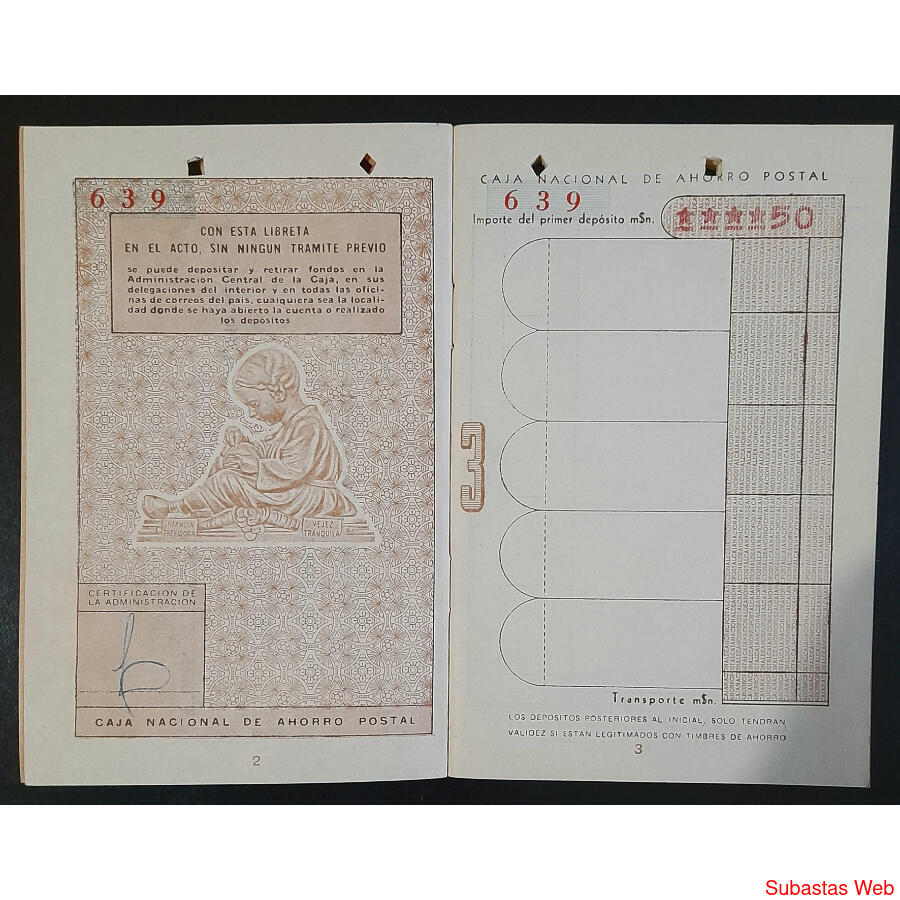 6 3 9
CON ESTA LIBRETA
EN EL ACTO, SIN NINGUN TRAMITE PREVIO
se puede depositar y retirar fondos en la
Administracion Central de la Caja, en sus
delegaciones del interior y en todas las ofici-
nas de correos del pais, cualquiera sea la locali-
dad donde se haya abierto la cuenta o realizado
los depósitos
INFANCIA
PREVISORA
VEJEZ
TRANQUILA
CERTIFICACION DE
LA ADMINISTRACION
CAJA NACIONAL DE AHORRO POSTAL
2
CAJA NACIONAL DE AHORRO POSTAL
6 3 9
Importe del primer depósito m$n.
50
3
Transporte m$n.
LOS DEPOSITOS POSTERIORES AL INICIAL, SOLO TENDRAN
VALIDEZ SI ESTAN LEGITIMADOS CON TIMBRES DE AHORRO
3
Subastas Web